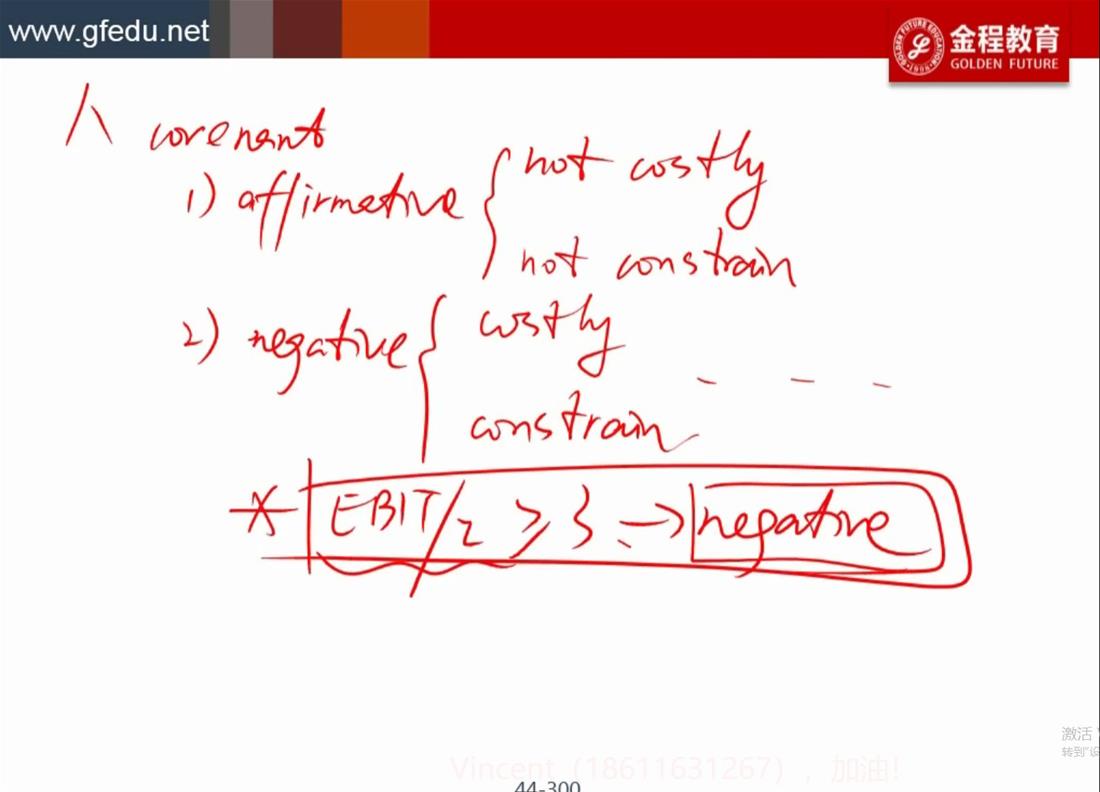 www.gfedu.net
金程教育
GOLDEN FUTURE
八 covenant
1) affirmative { not costly
not constrain
2) negative { costly
constrain
- - -
* EBIT/I ≥ 3 → negative
激活
转到"设
Vincent（18611631267），加油!
44-300